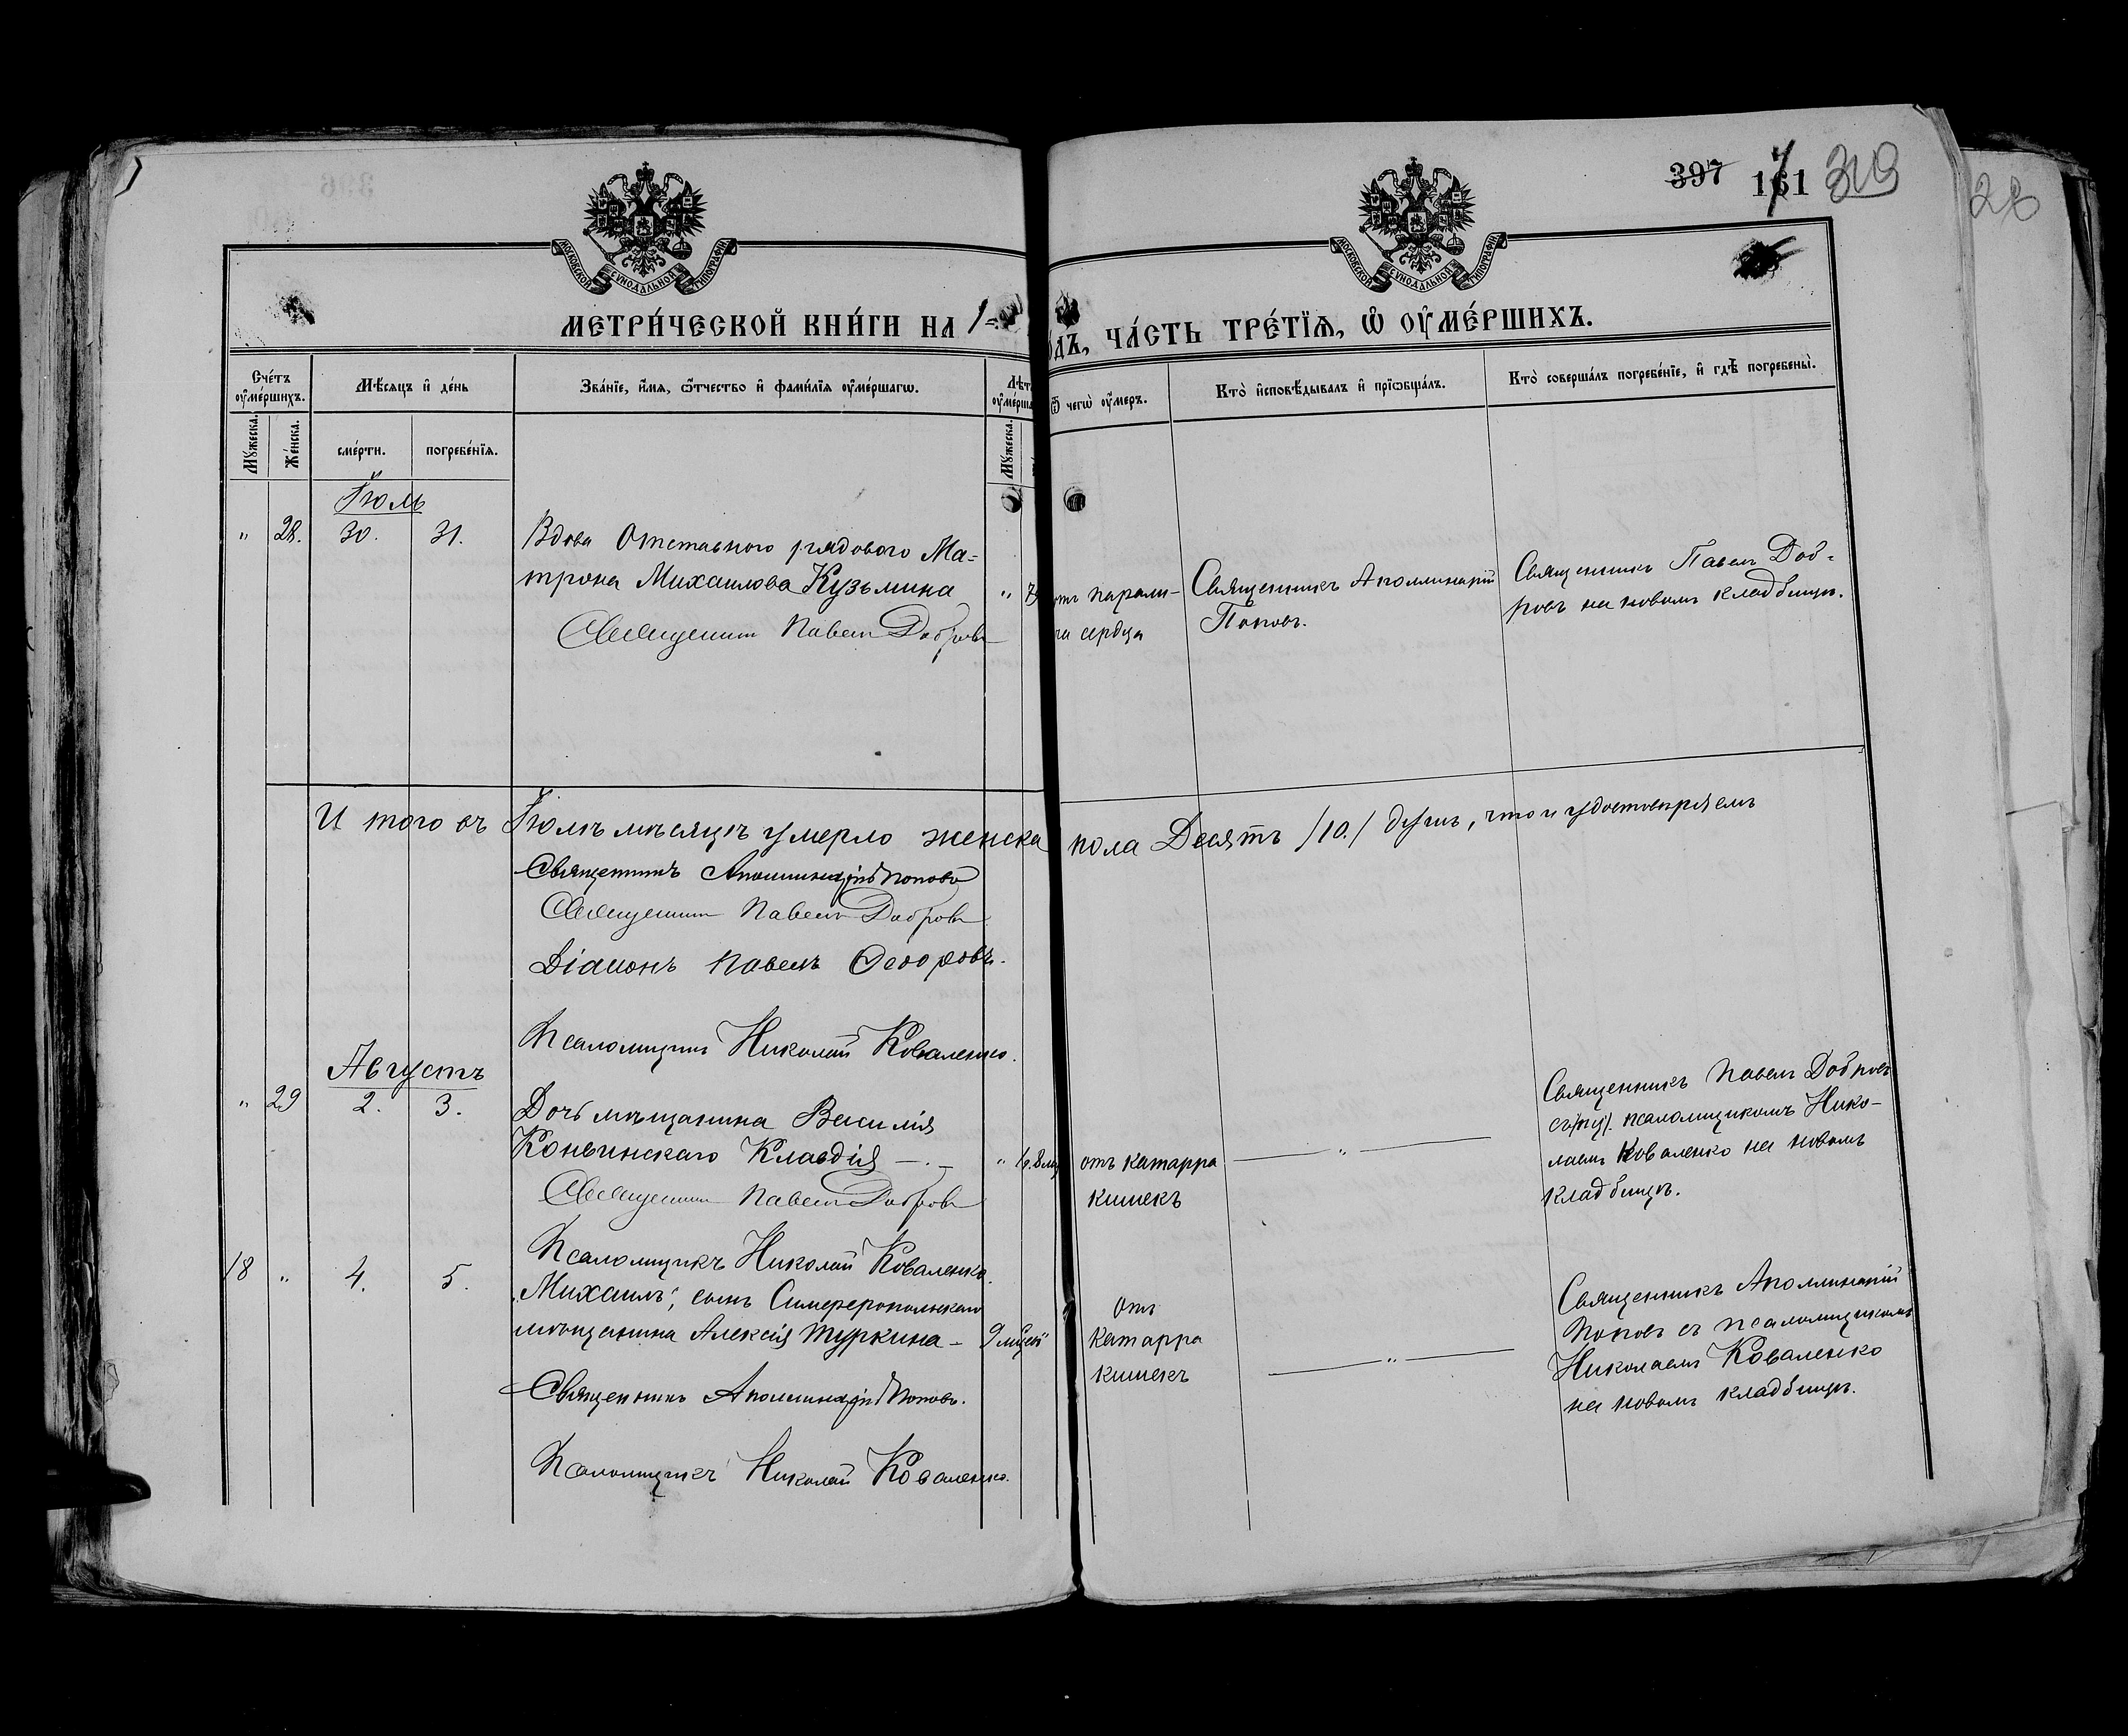 397 161 319
28
МОСКОВСКОЙ СУНОДАЛЬНОЙ ТИПОГРАФІИ
МОСКОВСКОЙ СУНОДАЛЬНОЙ ТИПОГРАФІИ
МЕТРИ́ЧЕСКОЙ КНИ́ГИ НА 1
ОДЪ, ЧА́СТЬ ТРЕ́ТІѦ, Ѡ҆ ОУ҆МЕ́РШИХЪ.
Сче́тъ оу҆ме́ршихъ.
Мѣ́сяцъ и҆ де́нь
Зва́нїе, и҆́мѧ, ѻ҆́тчество и҆ фами́лїѧ оу҆ме́ршагѡ.
Лѣт
оу҆ме́рша
Ѿ чегѡ̀ оу҆́меръ.
Кто̀ и҆сповѣ́дывалъ и҆ прїѡбща́лъ.
Кто̀ соверша́лъ погребе́нїе, и҆ гдѣ̀ погребены̀.
Мꙋ́жеска.
Же́нска.
сме́рти.
погребе́нїѧ.
Мꙋ́жеска.
Іюль
" 28. 30. 31.
Вдова Отставного рядового Ма-
трона Михаилова Кузьмина "
Священникъ Павелъ Добровъ
отъ парали-
ча сердца
Священникъ Аполлинарій
Поповъ.
Священникъ Павелъ Доб-
ровъ на новомъ кладбищѣ.
И того въ Іюлѣ мѣсяцѣ умерло женска пола Десять /10./ душъ, что и удостовѣряемъ
Священникъ Аполлинарій Поповъ
Священникъ Павелъ Добровъ
Діаконъ Павелъ Ѳеодоровъ.
Псаломщикъ Николай Коваленко.
Августъ
" 29 2. 3.
Дочь мѣщанина Василія
Конвинскаго Клавдія "
Священникъ Павелъ Добровъ
Псаломщикъ Николай Коваленко.
отъ катарра
кишекъ
"
Священникъ Павелъ Добровъ
псаломщикомъ Нико-
лаемъ Коваленко на новомъ
кладбищѣ.
18 " 4. 5.
"Михаилъ", сынъ Симферопольскаго
мѣщанина Алексѣя Туркина - 9 мѣсяц.
Священникъ Аполлинарій Поповъ.
Псаломщикъ Николай Коваленко.
Отъ
катарра
кишекъ
"
Священникъ Аполлинарій
Поповъ съ псаломщикомъ
Николаемъ Коваленко
на новомъ кладбищѣ.